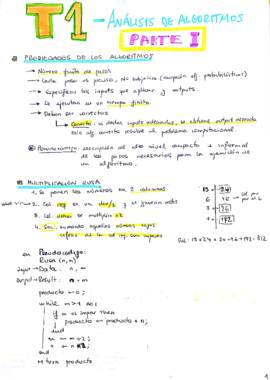 T1 - ANÁLISIS DE ALGORITMOS
PARTE I
PROPIEDADES DE LOS ALGORITMOS
→ Número finito de pasos
→ Cada paso es preciso, No subjetivo (excepción alg. probabilísticos)
→ Especificar los inputs que aplicar y outputs.
→ Se ejecutan en un tiempo finito
→ Deben ser correctos
↳ Correcto: si dados inputs adecuados, se obtiene output adecuado
este alg correcto resuelve el problema computacional.
Pseudocódigo: descripción de alto nivel compacta e informal
de los pasos necesarios para la ejecución de
un algoritmo.
MULTIPLICACIÓN RUSA
1. Se ponen los números en 2 columnas
2. Col. izq se va div/2 y se ignoran restos
3. Col. dcha se multiplica x2
4. Sol: sumando aquellos números cuyos
en la col izq son impares
13 - 24
6 48
3 96
1 192
Sol: 13 x 24 = 24 + 96 + 192 = 312
en Pseudocódigo:
RUSA (n, m)
input → Data: n, m
output → Result: n · m
producto ← 0;
while m > 1 do:
if m es impar then
producto ← producto + n;
end
m ← m ÷ 2;
n ← n x 2;
end
return producto
1